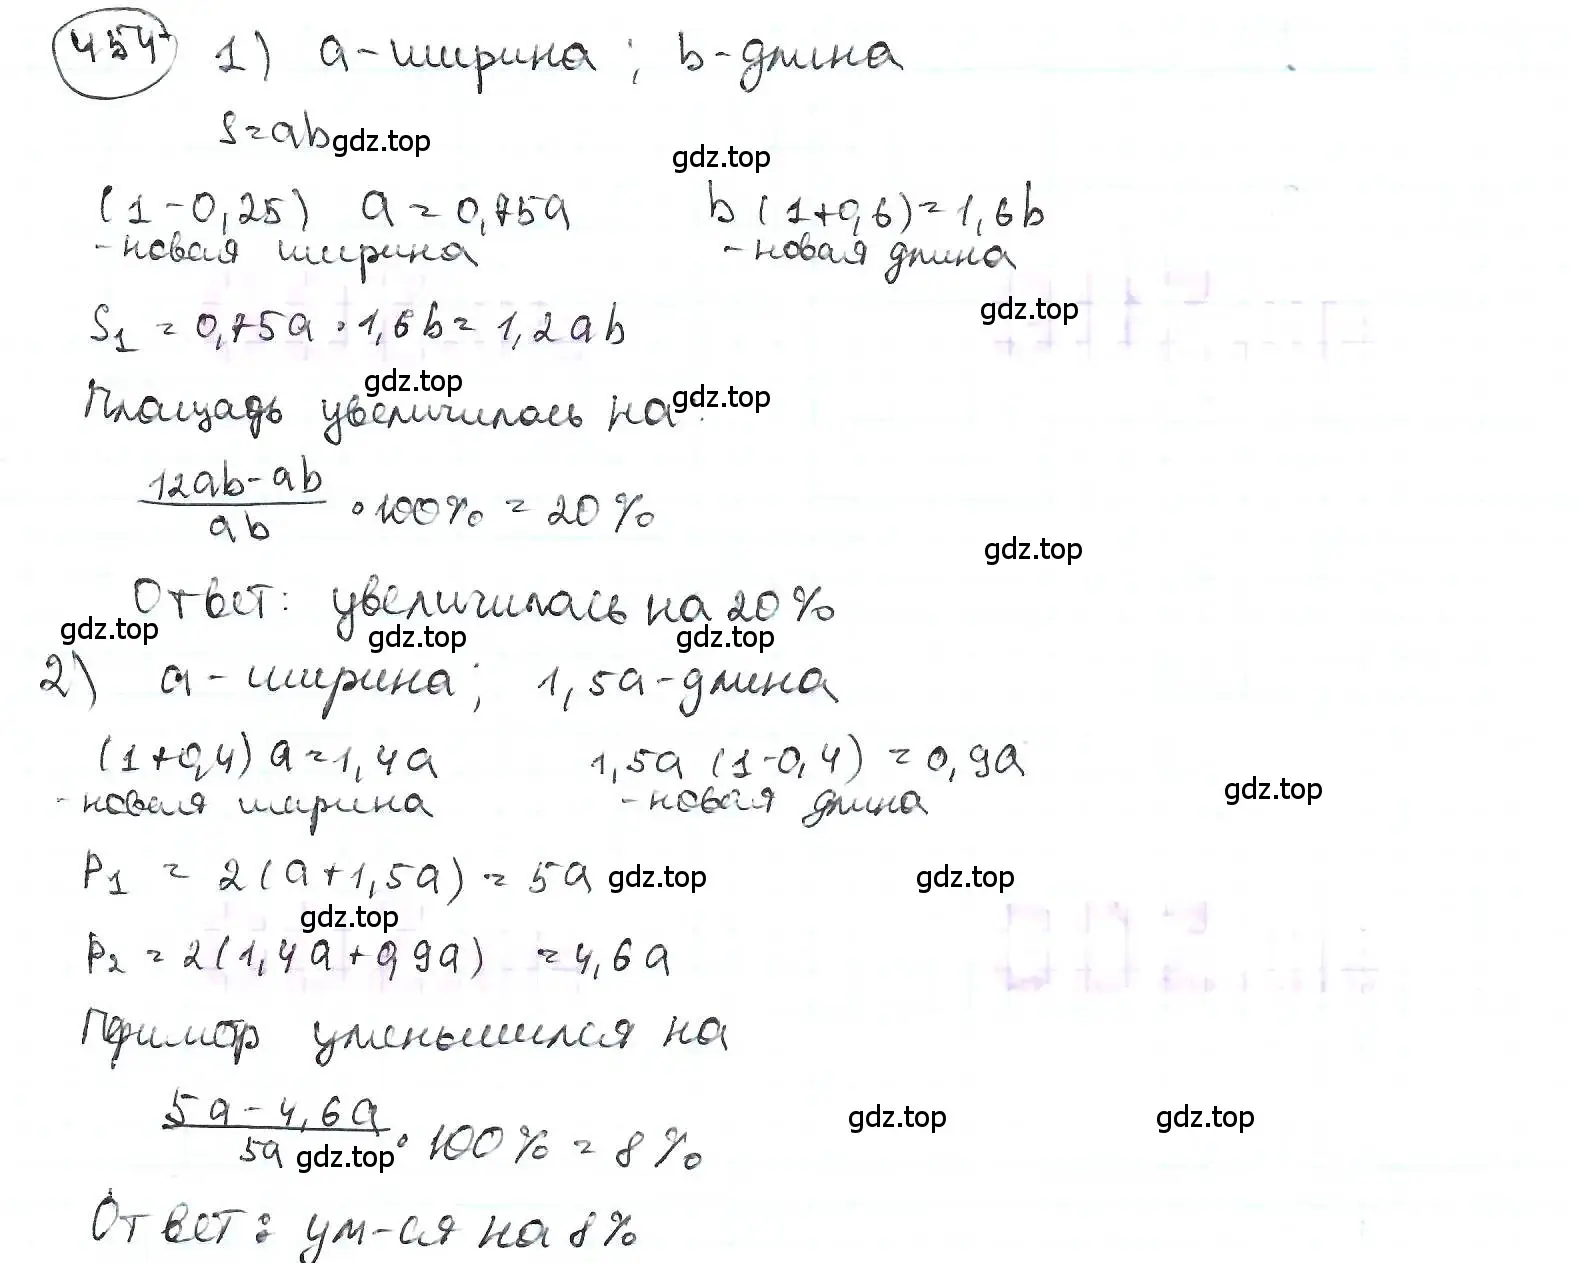 454 1) a-ширина; b-длина
S=ab gdz.top
gdz.top
(1-0,25) a=0,75a b(1+0,6)=1,6b
-новая ширина -новая длина
gdz.top
S1 = 0,75a·1,6b=1,2ab
gdz.top
Площадь увеличилась на: gdz.top
12ab-ab / ab · 100% = 20%
gdz.top
Ответ: увеличилась на 20%
gdz.top gdz.top gdz.top
2) a-ширина; 1,5a-длина
(1+0,4)a=1,4a 1,5a(1-0,4)=0,9a
gdz.top
-новая ширина -новая длина
P1 = 2(a+1,5a)=5a gdz.top gdz.top
gdz.top
P2=2(1,4a+0,9a)=4,6a
уменьшился на
5a-4,6a / 5a · 100%=8%
gdz.top gdz.top
gdz.top
Ответ: ум-ся на 8%